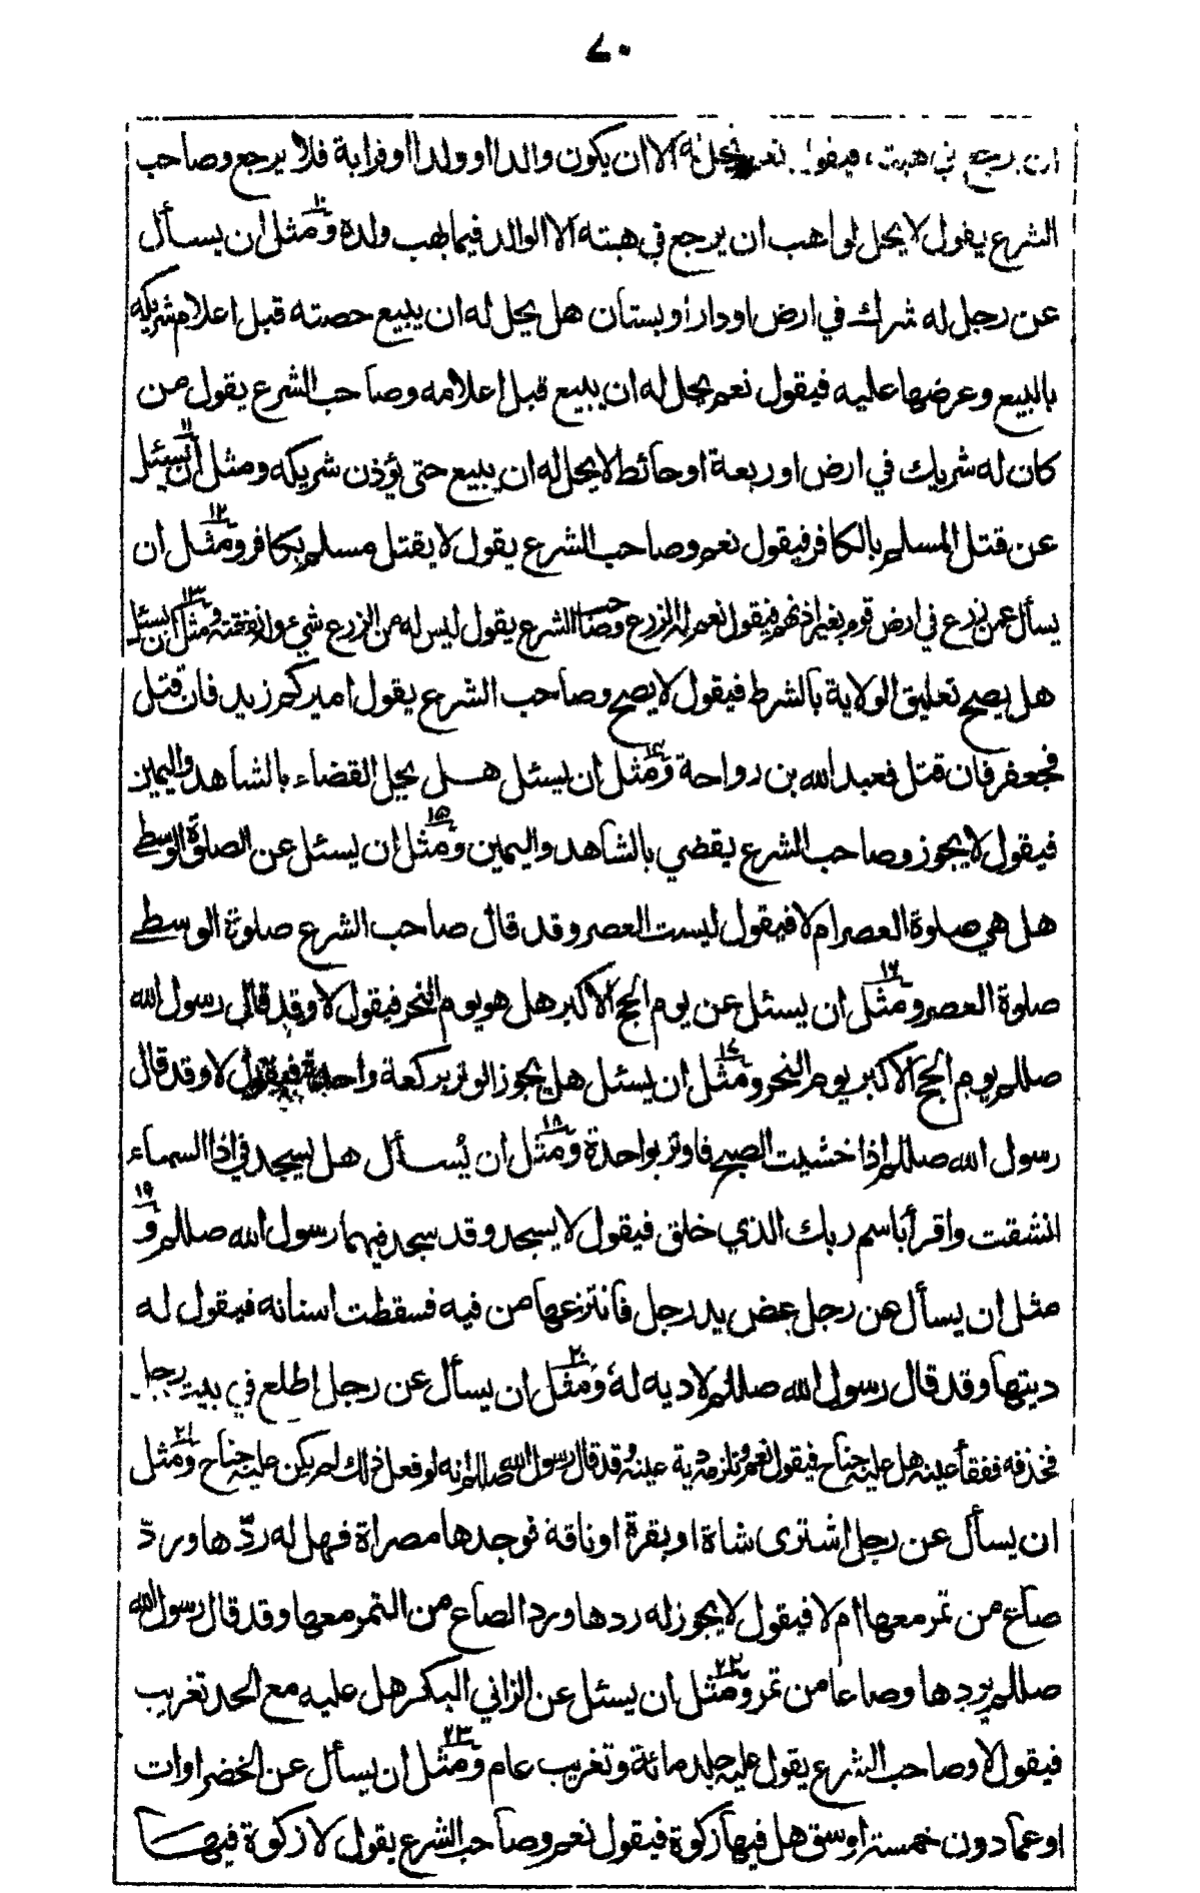 ٧٠
ان يرجع في هبته فيقول نعم يحل له الا ان يكون والدا او ولدا او قرابة فلا يرجع وصاحب
الشرع يقول لا يحل لواهب ان يرجع في هبته الا الوالد فيما يهب ولده ومثل ١٠ ان يسأل
عن رجل له شرك في ارض او دار او بستان هل يحل له ان يبيع حصته قبل اعلام شريكه
بالبيع وعرضها عليه فيقول نعم يحل له ان يبيع قبل اعلامه وصاحب الشرع يقول من
كان له شريك في ارض او ربعة او حائط لا يحل له ان يبيع حتى يؤذن شريكه ومثل ١١ ان يسئل
عن قتل المسلم بالكافر فيقول نعم وصاحب الشرع يقول لا يقتل مسلم بكافر ومثل ١٢ ان
يسأل عمن زرع في ارض قوم بغير اذنهم فيقول نعم له الزرع وصاحب الشرع يقول ليس له من الزرع شيء وله نفقته ومثل ١٣ ان يسئل
هل يصح تعليق الولاية بالشرط فيقول لا يصح وصاحب الشرع يقول اميركم زيد فان قتل
فجعفر فان قتل فعبد الله بن رواحة ومثل ١٤ ان يسئل هل يحل القضاء بالشاهد واليمين
فيقول لا يجوز وصاحب الشرع يقضي بالشاهد واليمين ومثل ١٥ ان يسئل عن الصلوة الوسطے
هل هي صلوة العصر ام لا فيقول ليست العصر وقد قال صاحب الشرع صلوة الوسطے
صلوة العصر ومثل ١٦ ان يسئل عن يوم الحج الاكبر هل هو يوم النحر فيقول لا وقد قال رسول الله
صللم يوم الحج الاكبر يوم النحر ومثل ١٧ ان يسئل هل يجوز الوتر بركعة واحدة فيقول لا وقد قال
رسول الله صللم اذا خشيت الصبح فاوتر بواحدة ومثل ١٨ ان يُسأل هل يسجد في اذا السماء
انشقت واقرأ باسم ربك الذي خلق فيقول لا يسجد وقد سجد فيهما رسول الله صللم و ١٩
مثل ان يسأل عن رجل عض يد رجل فانتزعها من فيه فسقطت اسنانه فيقول له
ديتها وقد قال رسول الله صللم لا دية له ومثل ٢٠ ان يسأل عن رجل اطلع في بيت رجل
فخذفه ففقأ عينه هل عليه جناح فيقول نعم وتلزمه دية عينه وقد قال رسول الله صللم انه لو فعل ذلك لم يكن عليه جناح ومثل ٢١
ان يسأل عن رجل اشترى شاة او بقرة او ناقة فوجدها مصراة فهل له ردّها ورد ّ
صاع من تمر معها ام لا فيقول لا يجوز له ردها ورد الصاع من التمر معها وقد قال رسول الله
صللم يردها وصاعا من تمر ومثل ٢٢ ان يسئل عن الزاني البكر هل عليه مع الحد تغريب
فيقول لا وصاحب الشرع يقول عليه جلد مائة وتغريب عام ومثل ٢٣ ان يسأل عن الخضراوات
او عما دون خمسة اوسق هل فيها زكوة فيقول نعم وصاحب الشرع يقول لا زكوة فيها